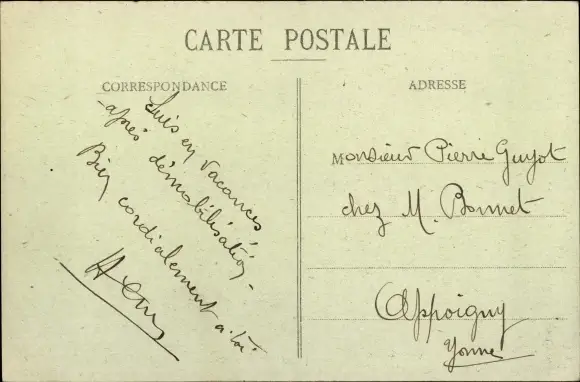 CARTE POSTALE
CORRESPONDANCE
Suis en vacances
après démobilisation -
Bien cordialement à toi
ADRESSE
Monsieur Pierre Guyot
chez M. Bonnet
Appoigny
Yonne